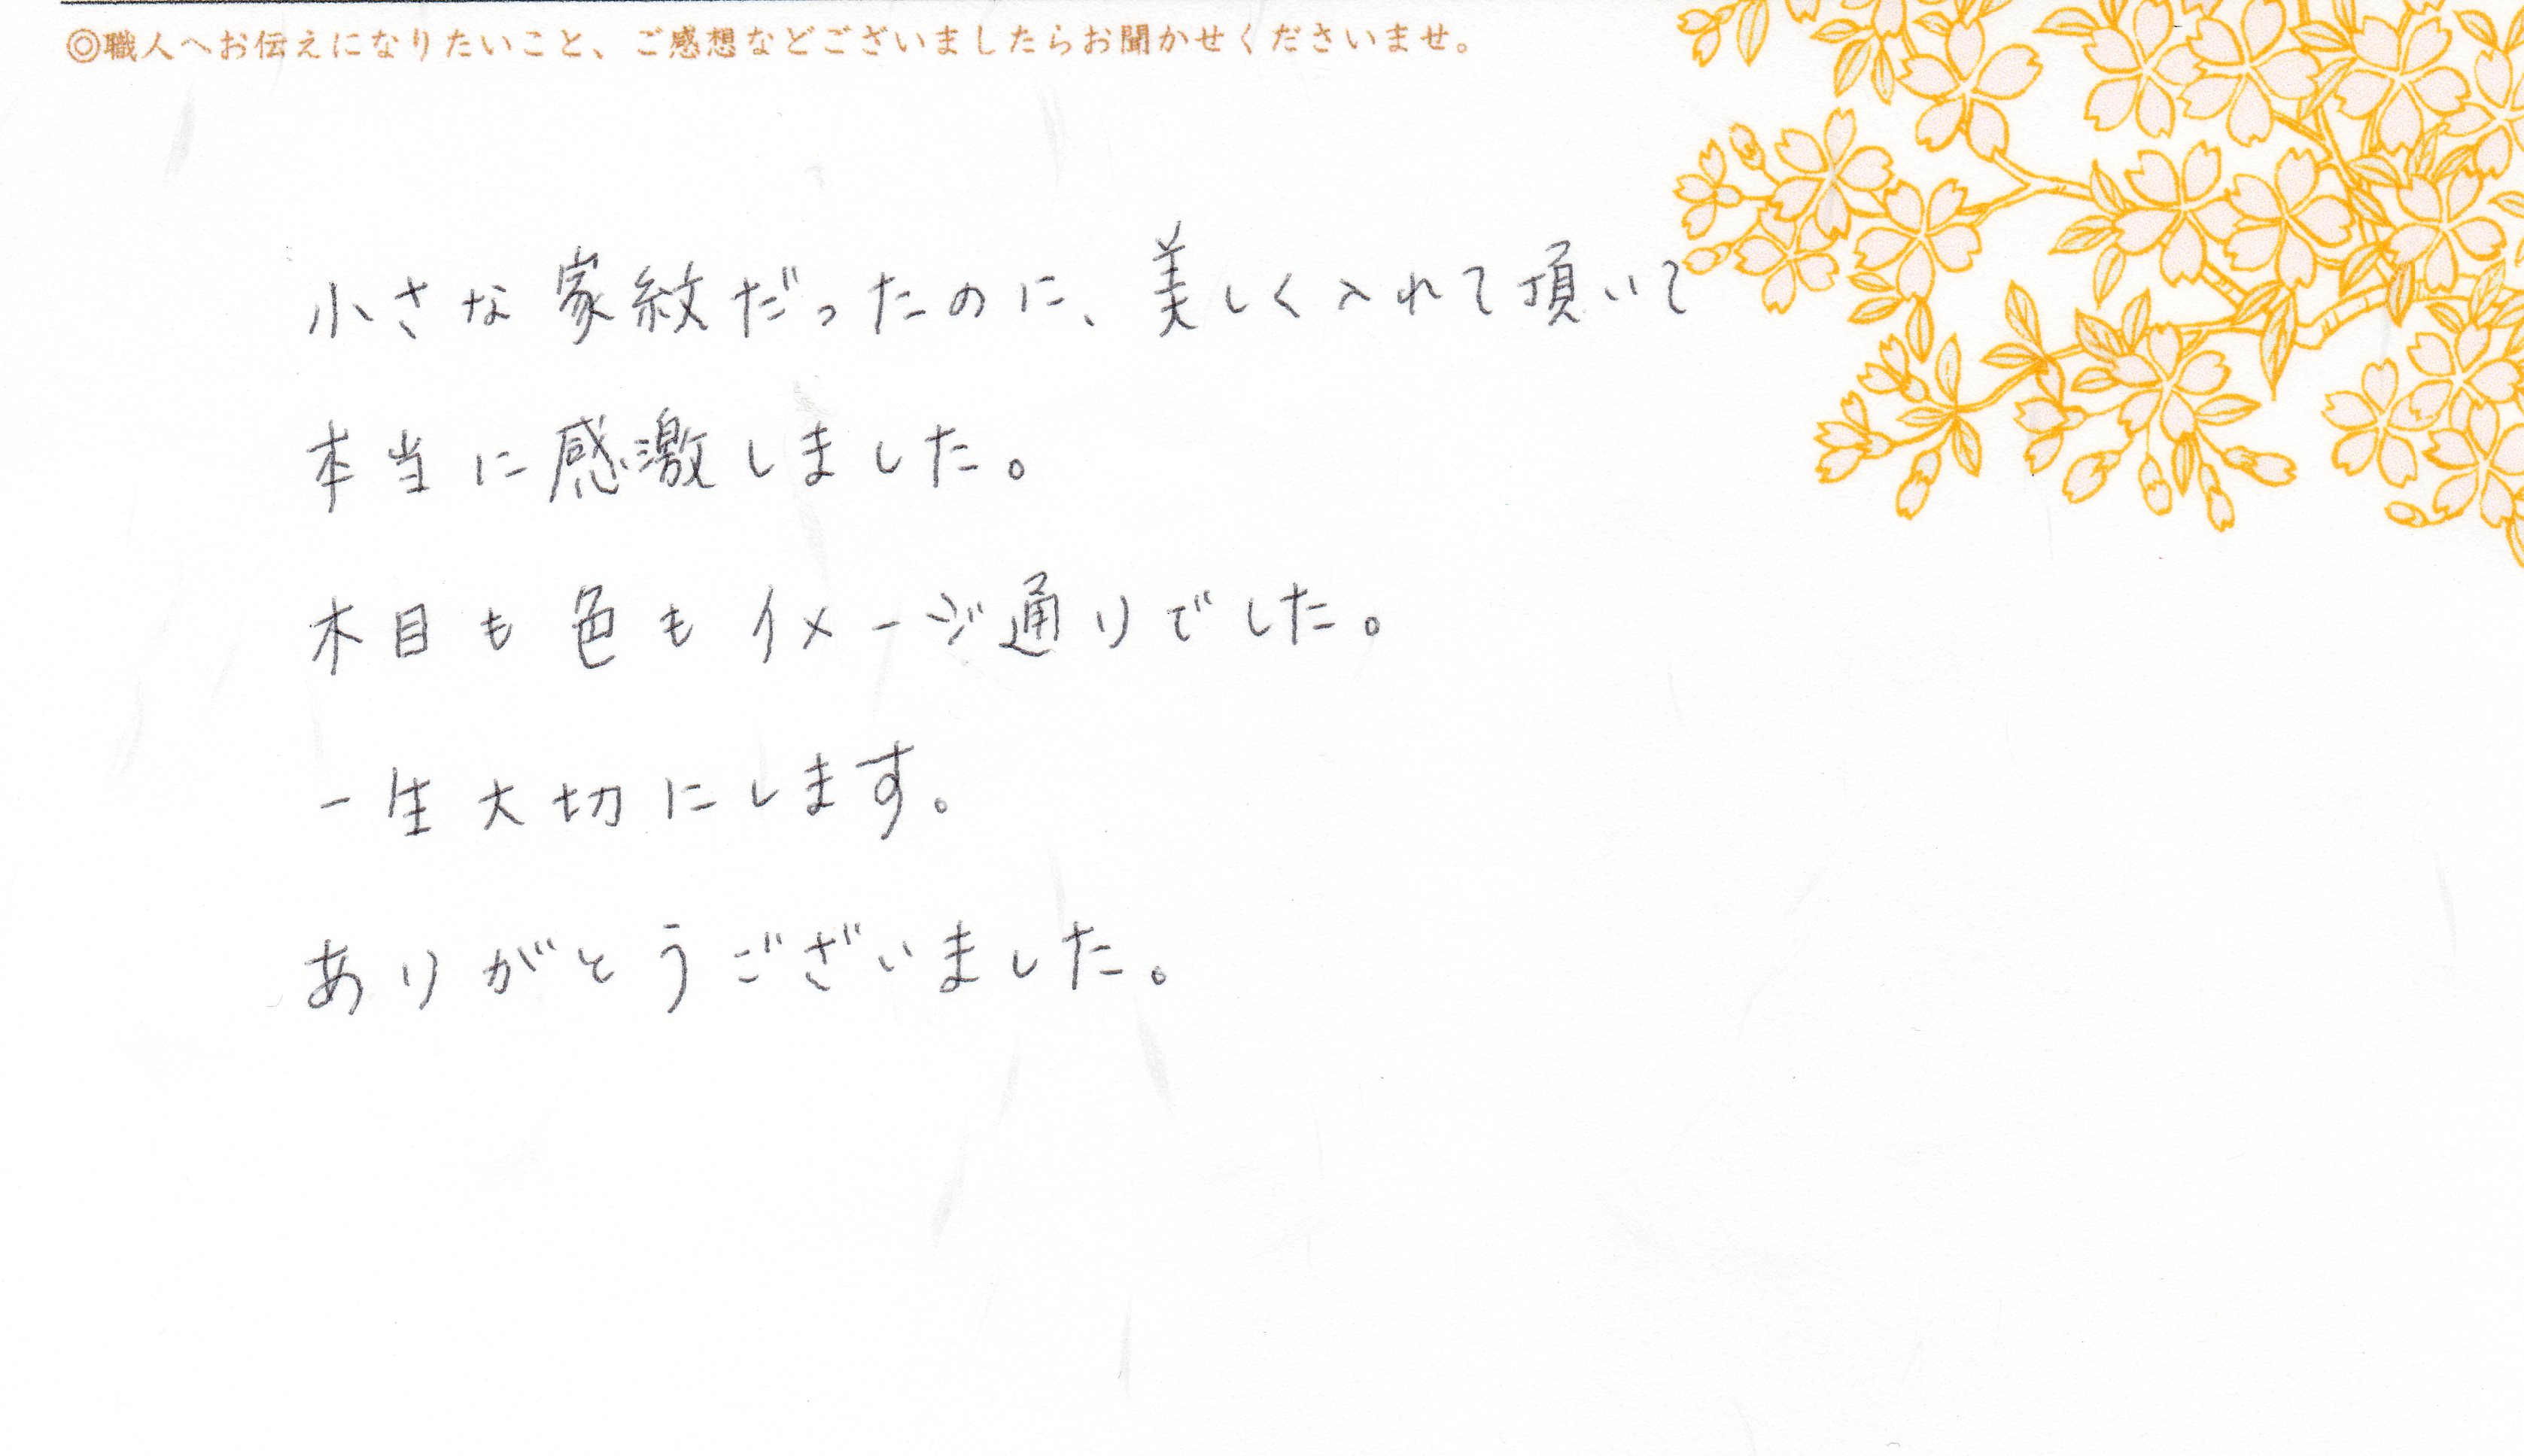 ◎職人へお伝えになりたいこと、ご感想などございましたらお聞かせくださいませ。
小さな家紋だったのに、美しく入れて頂いて
本当に感激しました。
木目も色もイメージ通りでした。
一生大切にします。
ありがとうございました。